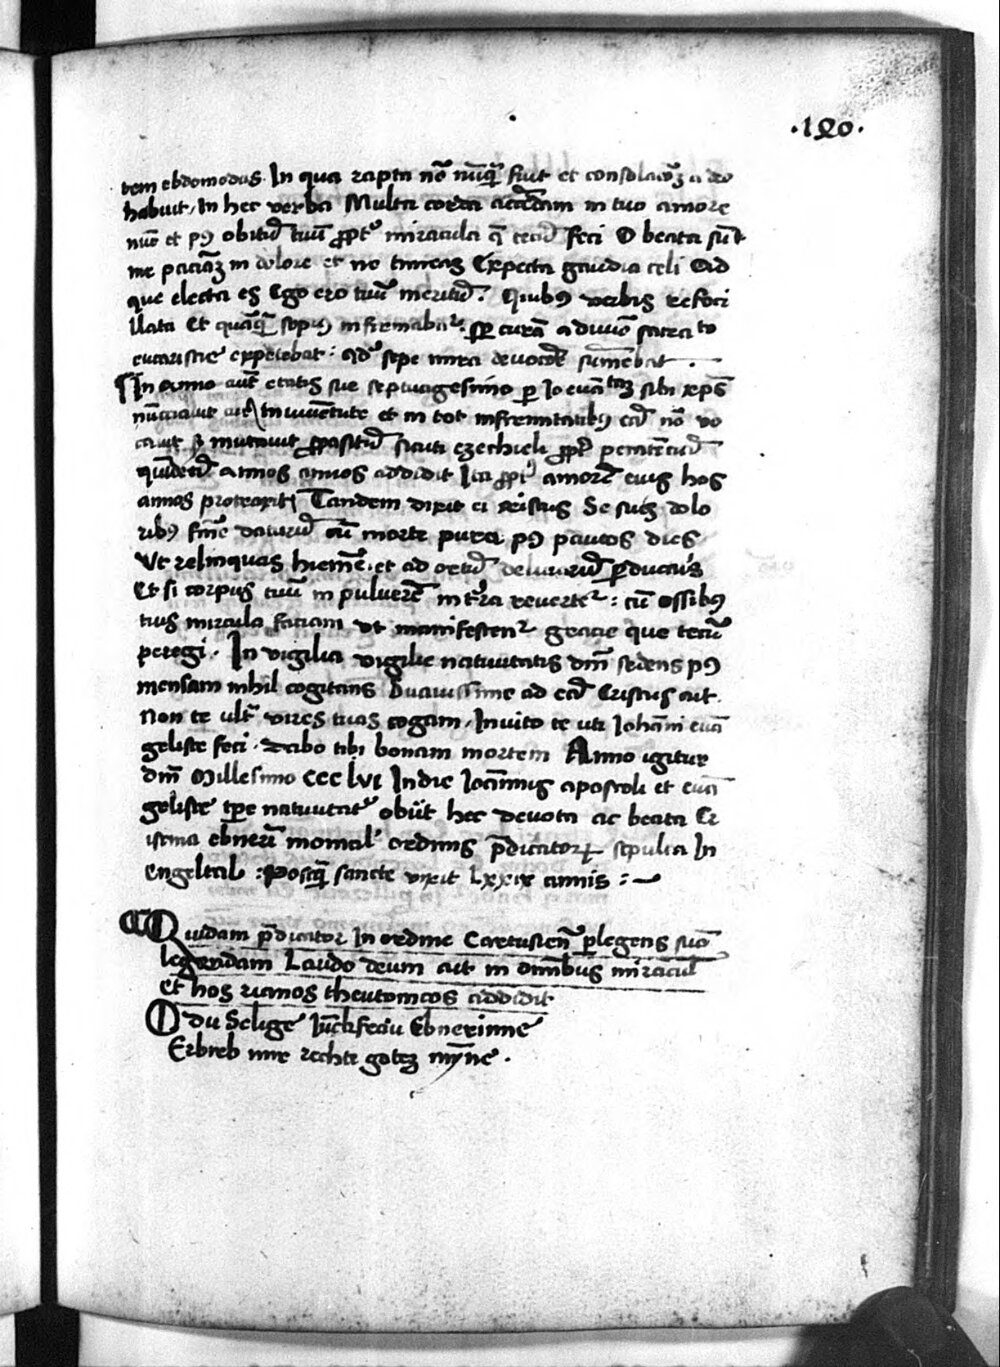 ·180·
tem ebdomodas. In qua rapta nō nūq̄ fuit et consolacōꝫ a deo
habuit, In hec verba Multa corda accēdam in tuo amore
nūc et p9 obitū tuū ꝓpt' miracula q̄ tecū feci O beata sūt
me paciāꝫ in dolore et nō timeas Expecta gaudia celi Ad
que electa es Ego ero tuū meritū. Quibus verbis refoci
llata Et quāq̄ sepi9 infirmabat' sp curā a diuio sacra to
eucaristie expetebat: Ad' sepe mira deuocōe sumebat
¶ In anno aūt etatis sue septuagesimo
nūciauit In iuuētute et in tot infirmitatibus eā nō vo
caui mutauit ꝓpositū sicuti ezechieli ꝓpt penitēciā
quīdecī annos annos addidit Ita ꝓpt' amorē eius hos
annos protraxit Tandem dixit ei xristus Se suis dolo
rib9 finē daturū cū morte pura p9 paucos dies
Ut relinquas hiemē et ad ortū deliciarū ꝑducaris
Et si corpus tuū in puluerē in t'ra reuertet': cū ossibus
tuis miracula faciam vt manifestent' gracie que tecū
peregi. In vigilia vigilie natiuitatis dnī sedens p9
mensam nihil cogitans Suauissime ad eā Cristus ait.
Non te ult' vires tuas cogam, Inuito te uti Iohāni euā
geliste feci. dabo tibi bonam mortem Anno igitur
dnī Millesimo ccc lvi In die Ioānnis apostoli et euā
geliste tpe natiuitat' obiit hec deuota ac beata Cr
istina ebneri monial' ordinis p̄dicatorꝝ sepulta In
Engeltal: Postq̄ sancte vixit Lxxix annis:
Quidam p̄dicator In ordine Cartusien̄ ꝑlegens suā
legendam Laudo deum ait in omībus miracul'
et hos ricmos theutonicos addidit
O du Selige Iūckfraw Ebnerinne
Erbreb mir rechte gotez mȳne.